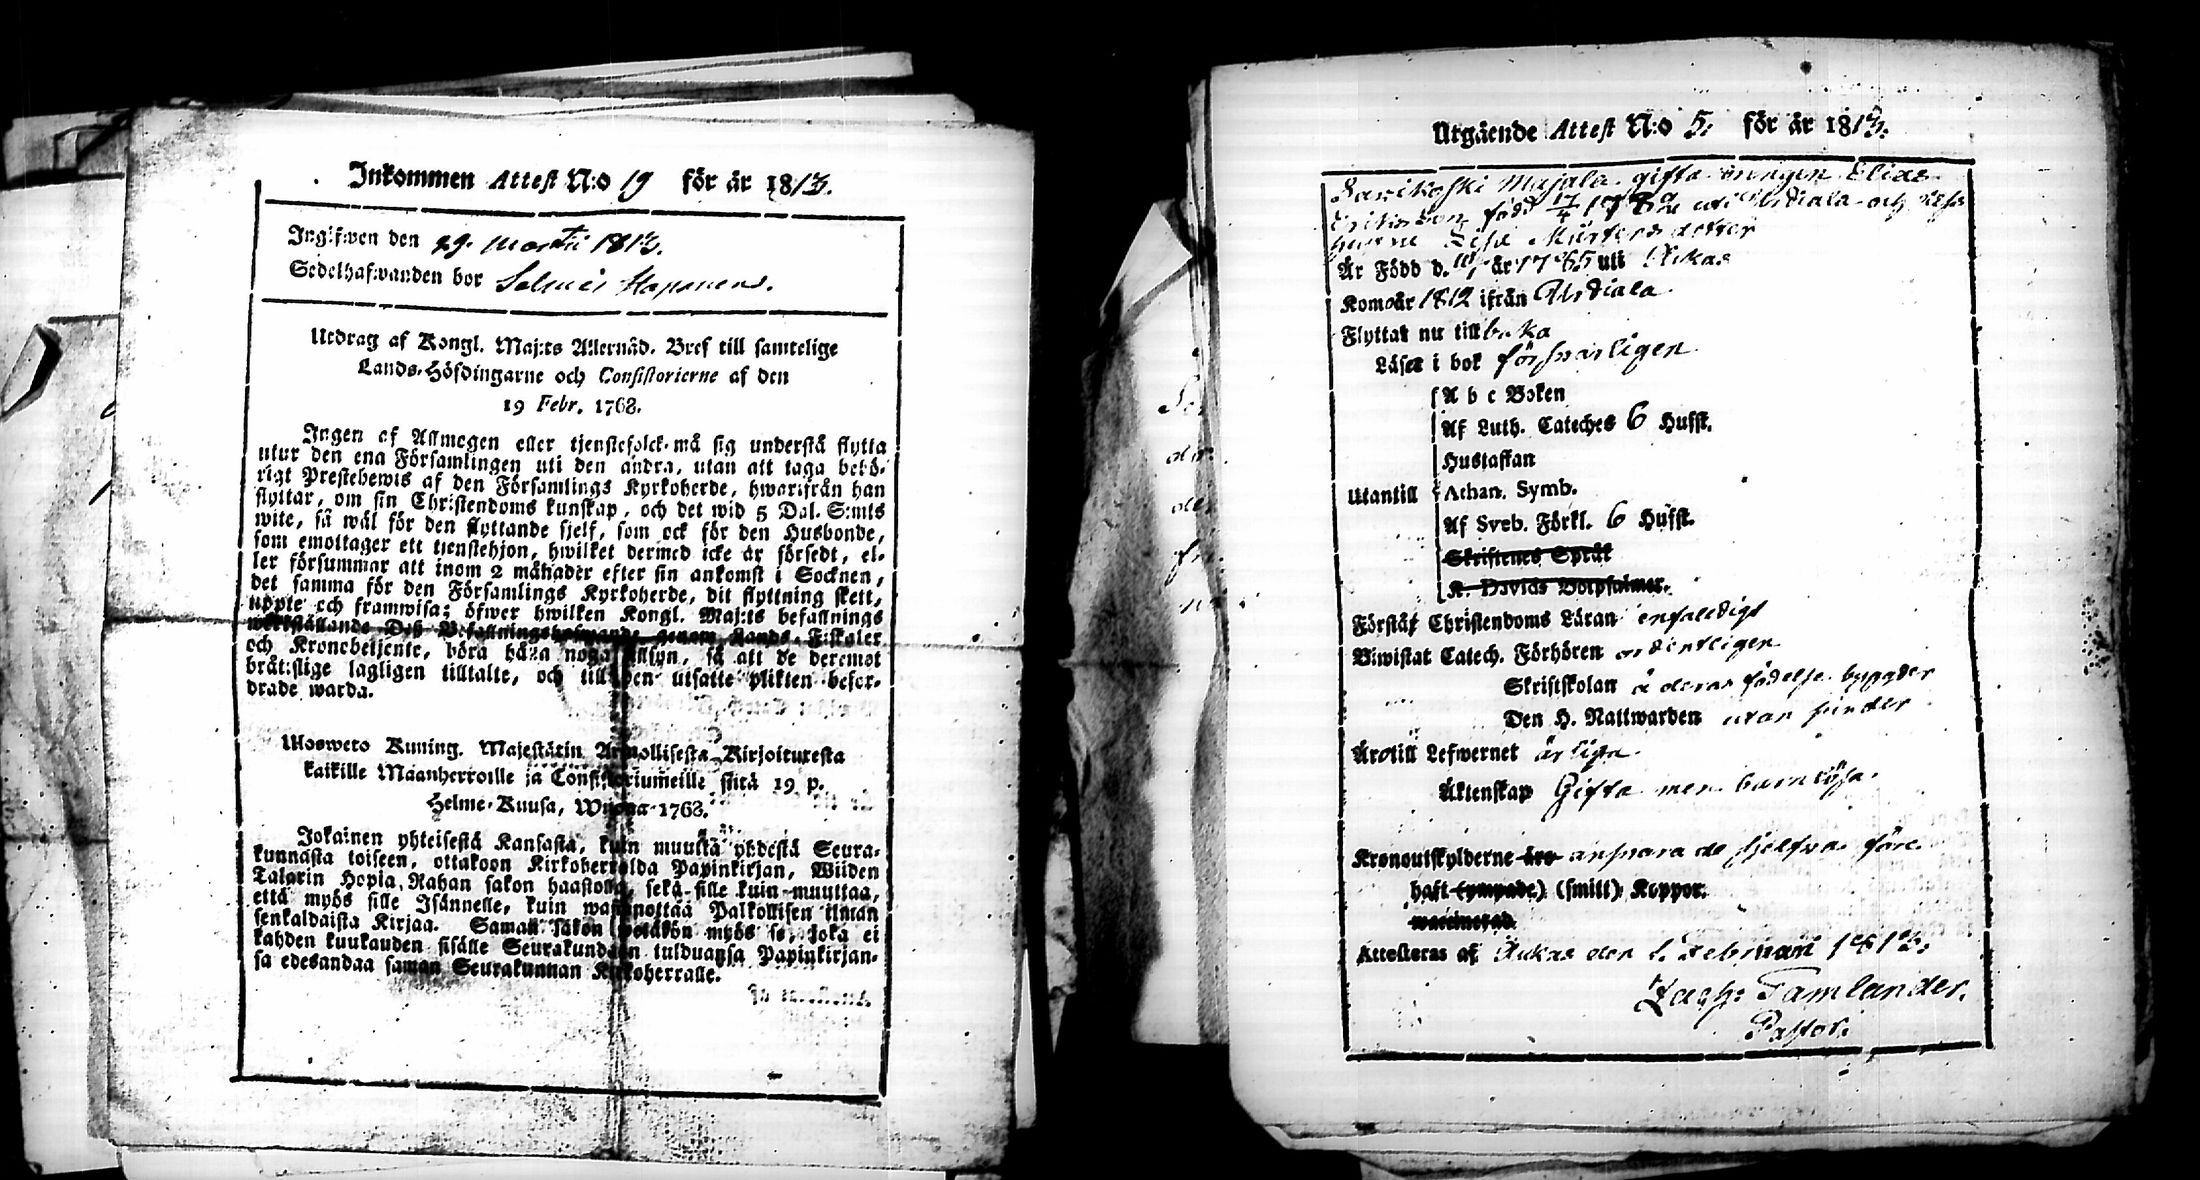 Inkommen Attest N:o 19 för år 1813.
Ingifwen den 29. Martii 1813.
Sedelhafwanden bor
Utdrag af Kongl. Maj:ts Allernåd. Bref till samtelige
Lands-Höfdingarne och Consistorierne af den
19 Febr. 1768.
Ingen af Allmogen eller tjenstefolck må sig understå flytta
utur den ena Församlingen uti den andra, utan att taga behö-
rigt Prestebewis af den Församlings Kyrkoherde, hwarifrån han
flyttar, om sin Christendoms kunskap, och det wid 5 Dal. S:mts
wite, så wäl för den flyttande sjelf, som ock för den Husbonde,
som emottager ett tienstehjon, hwilket dermed icke är försedt, el-
ler försummar att inom 2 månader efter sin ankomst i Socknen,
det samma för den Församlings Kyrkoherde, dit flyttning skett,
uppte och framwisa; öfwer hwilken Kongl. Maj:ts befallnings
werkställande Deß Befallningshafwande genom Lands-Fiskaler
och Kronobetjente, böra hafwa noga illsyn, så att de deremot
brätslige lagligen tilltalte, och till den utsatte plikten befor-
drade warda.
Ulosweto Kuning. Majestätin Armollisesta Kirjoituxesta
kaikille Maanherroille ja Consistoriumeille siitä 19 p.
Helme-Kuusa, Wuonna 1768.
Jokainen yhteisestä Kansasta, kuin muutta yhdestä Seura-
kunnasta toiseen, ottakoon Kirkoherralda Papinkirjan, Wiiden
Talarin Hopia Rahan sakon haastolla, sekä sille kuin muuttaa,
että myös sille Isännelle, kuin wastanottaa Palkollisen ilman
senkaldaista Kirjaa. Saman sakon wetäkön myös se, joka ei
kahden kuukauden sisälle Seurakundaan tulduansa Papinkirjan-
sa edesandaa saman Seurakunnan Kirkoherralle.
Utgående Attest N:o 5. för år 1813.
Sarikoski Majala gifta Inhysingen Elias
Eriksson född 17/4 uti Urdiala och deß
hustru Lisa Mårtensdotter
Är Född d. år 1765 uti Akas
Kom år 1812 ifrån Urdiala
Flyttat nu tillbaka
Läset i bok försvarligen
A b c Boken
Af Luth. Cateches 6 Hufst.
Hustaflan
Utantill Athan. Symb.
Af Sveb. Förkl. 6 Hufst.
Skriftenes Språk
K. Davids Botpsalmer.
Förstår Christendoms Läran enfaldigt
Biwistat Catech. Förhören ordentligen
Skriftskolan å deras födelse bygder
Den H. Nattwarden utan hinder
Äro till Lefwernet ärliga
Äktenskap Gifta men barnlösa.
Kronoutskylderne äro ansvara de sjelfva före
haft (ympade) (smitt) Koppor.
waccinerad
Attesteras af Akas den 1. Februari 1813.
Zach: Tamlander.
Pastor.